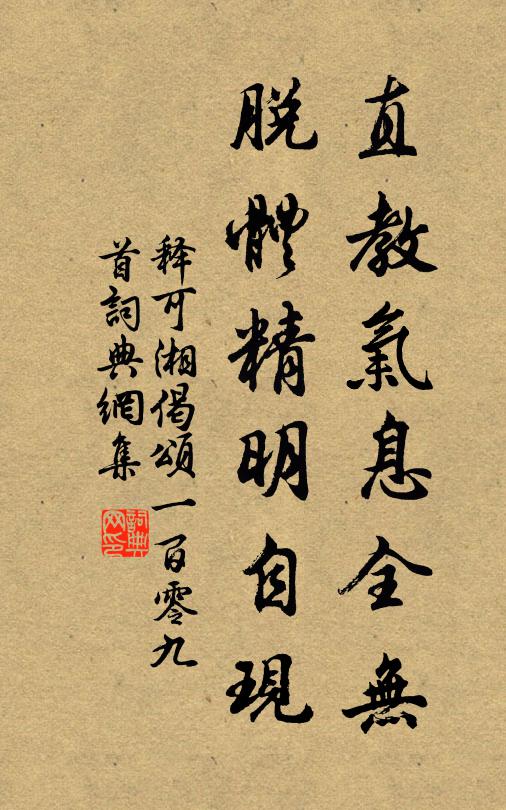 直教氣息全無
脫體精明自現
释可湘偈頌一百零九
首詞典網集
詞典
网印